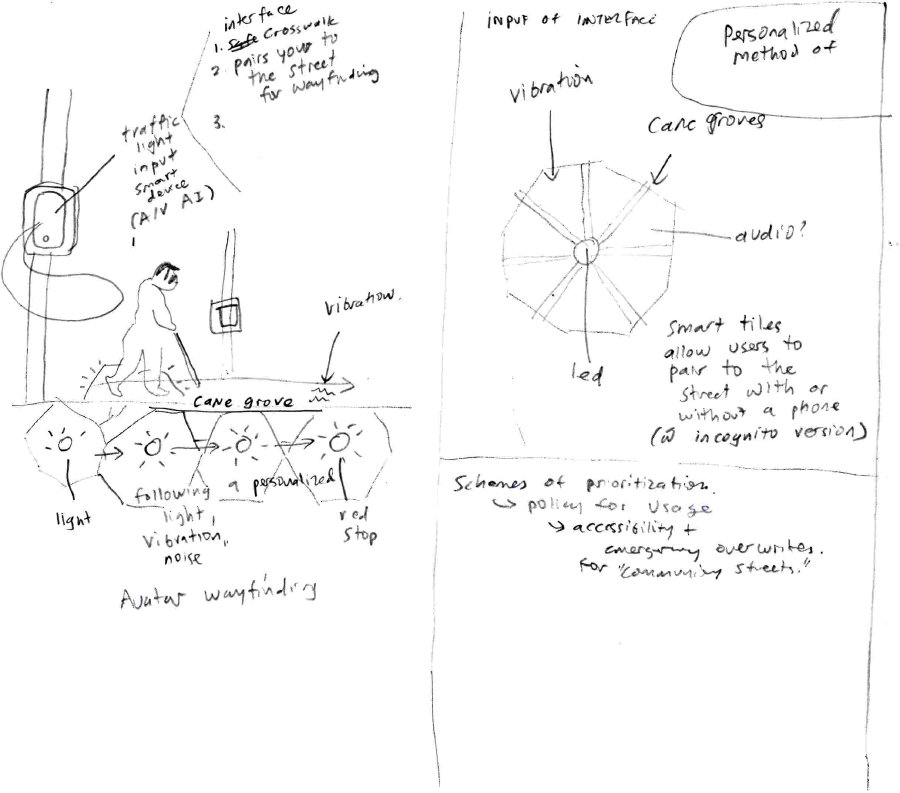 interface
1. Safe Crosswalk
2. pairs your to
the street
for wayfinding
3.
traffic
light
input
smart
device
(A/V AI)
vibration.
cane grove
following a personalized
light,
vibration,
noise
light
red
stop
Avatar wayfinding
INPUT OF INTERFACE
Personalized
method of
vibration
cane groves
audio?
led
Smart tiles
allow users to
pair to the
street with or
without a phone
(w incognito version)
Schemes of prioritization.
policy for usage
accessibility +
emergency overwrites.
for "community streets."